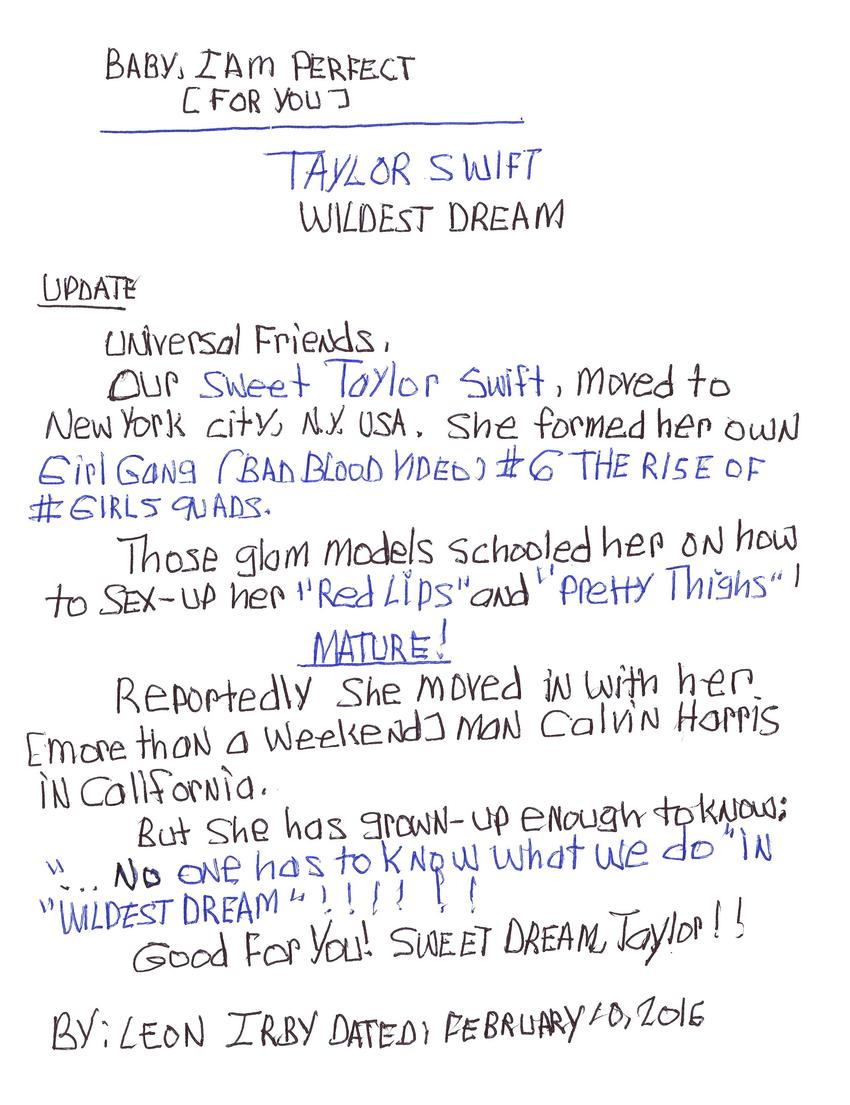 BABY, I AM PERFECT
[FOR YOU]
TAYLOR SWIFT
WILDEST DREAM
UPDATE
Universal Friends,
Our Sweet Taylor Swift, moved to
New York city, N.Y. USA. She formed her own
Girl Gang (BAD BLOOD VIDEO) #6 THE RISE OF
#GIRLS QUADS.
Those glam models schooled her on how
to SEX-UP her "Red Lips" and "Pretty Thighs" !
MATURE!
Reportedly She moved in with her
[more than a Weekend] man Calvin Harris
in California.
But she has grown-up enough to know;
"... No one has to know what we do "IN
"WILDEST DREAM" !!!!!!
Good For You! SWEET DREAM, Taylor!!
BY: LEON IRBY DATED: FEBRUARY 10, 2016